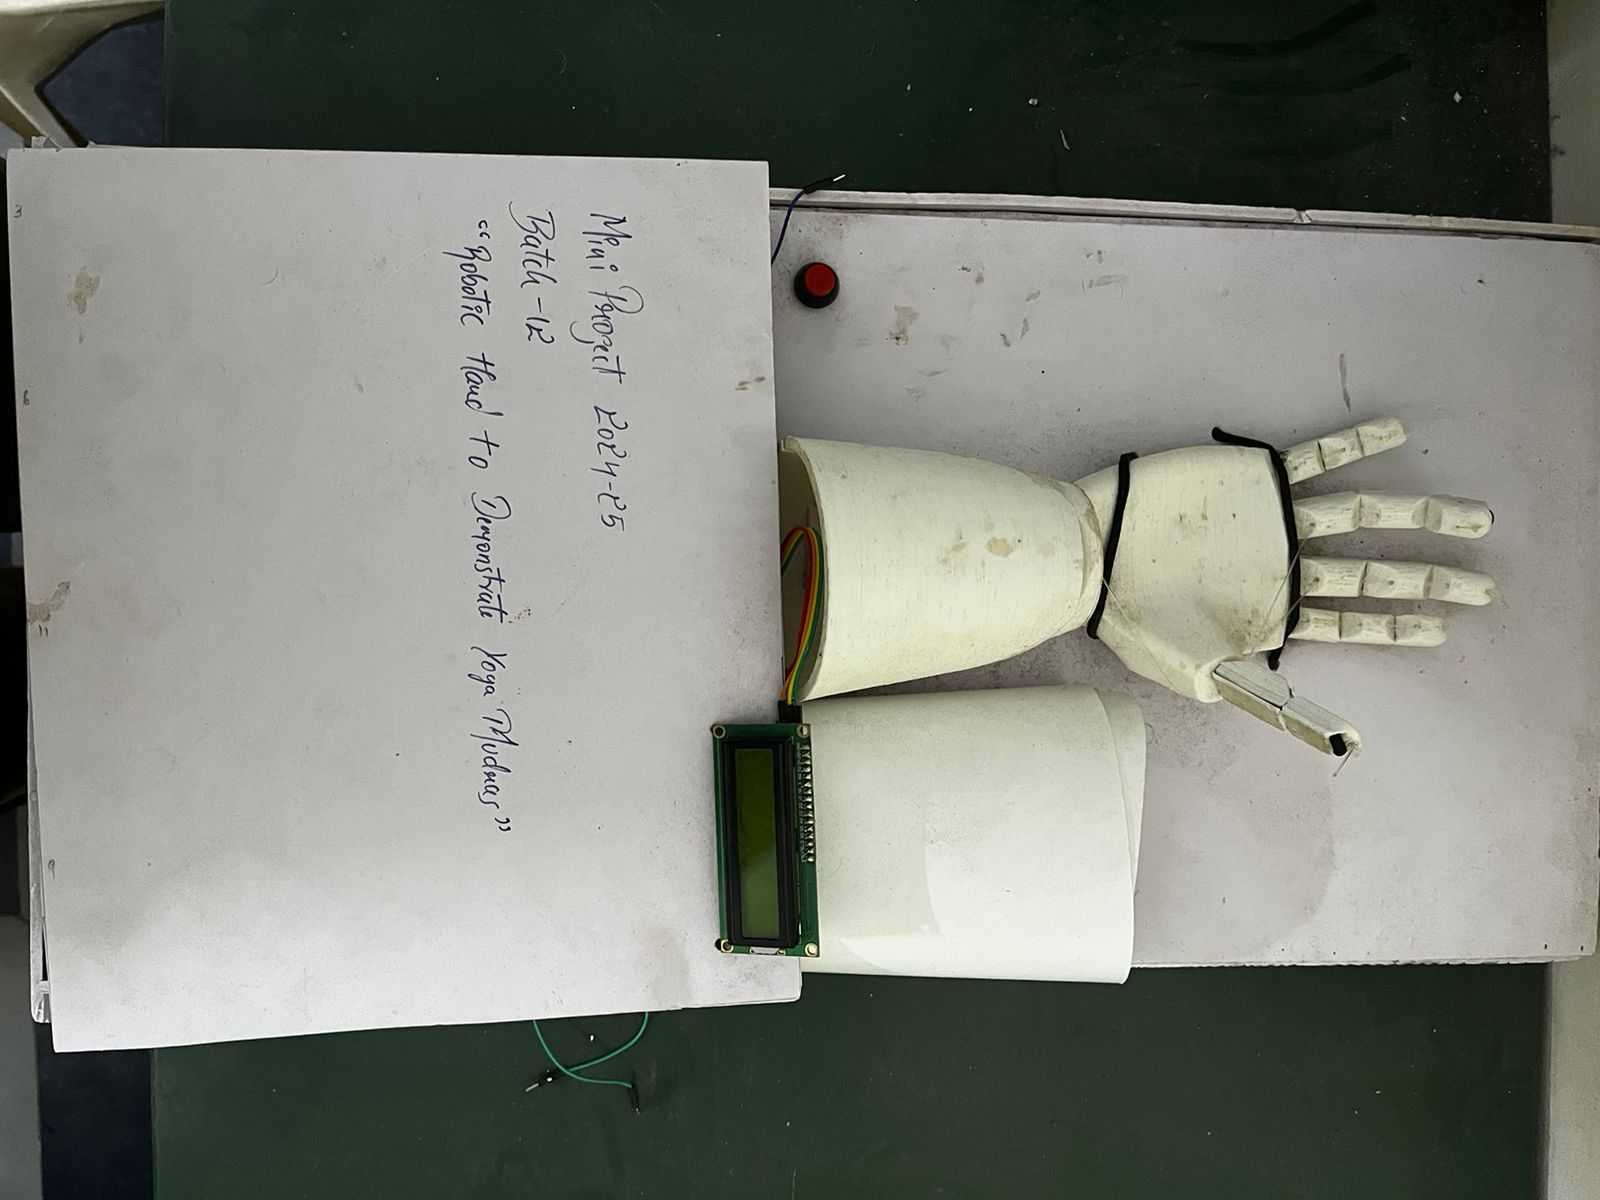 Mini Project 2024-25
Batch-12
"Robotic Hand to Demonstrate Yoga Mudras"